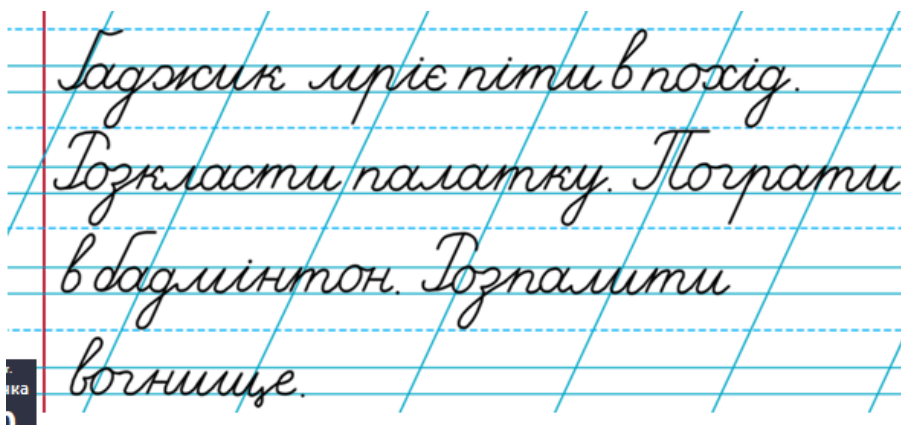 Гаджик мріє піти в похід.
Розкласти палатку. Пограти
в бадмінтон. Розпалити
вогнище.